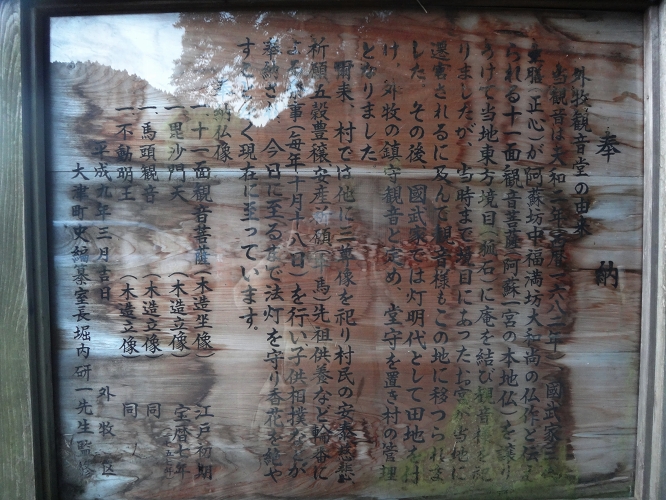 奉納
外牧観音堂の由来
当観音は天和二年
(正心)が阿蘇坊中福満坊大和尚の仏作と伝え
られる十一面観音菩薩(阿蘇一宮の本地仏)を譲り
うけて当地東方境目(狐石)に庵を結び観音様を祀
りましたが、当時まで境目にあったお宮が当地に
遷宮されるに及んで観音様もこの地に移つられま
した。その後、國武家では灯明代として田地を
け、外牧の鎮守観音と定め、堂守を置き村の管理
となりました。
爾来、村では他に三尊像を祀り村民の安泰
祈願五穀豊穣安産祈願(牛馬)先祖供養など輪番に
事(毎年十月十八日)を行い子供相撲などが
奉納さ 今日に至るまで法灯を守り香花を絶や
すことなく現在に至っています。
仏像
一十一面観音菩薩(木造坐像) 江戸初期
一毘沙門天 (木造立像) 宝暦七年
一馬頭観音 (木造立像) 同
一不動明王 (木造立像) 同
平成九年三月吉日 外牧区
大津町史編纂室長堀内研一先生監修